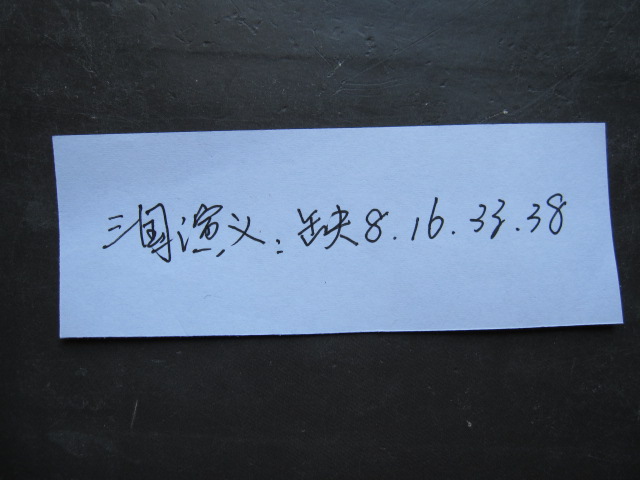 三国演义:缺8.16.33.38